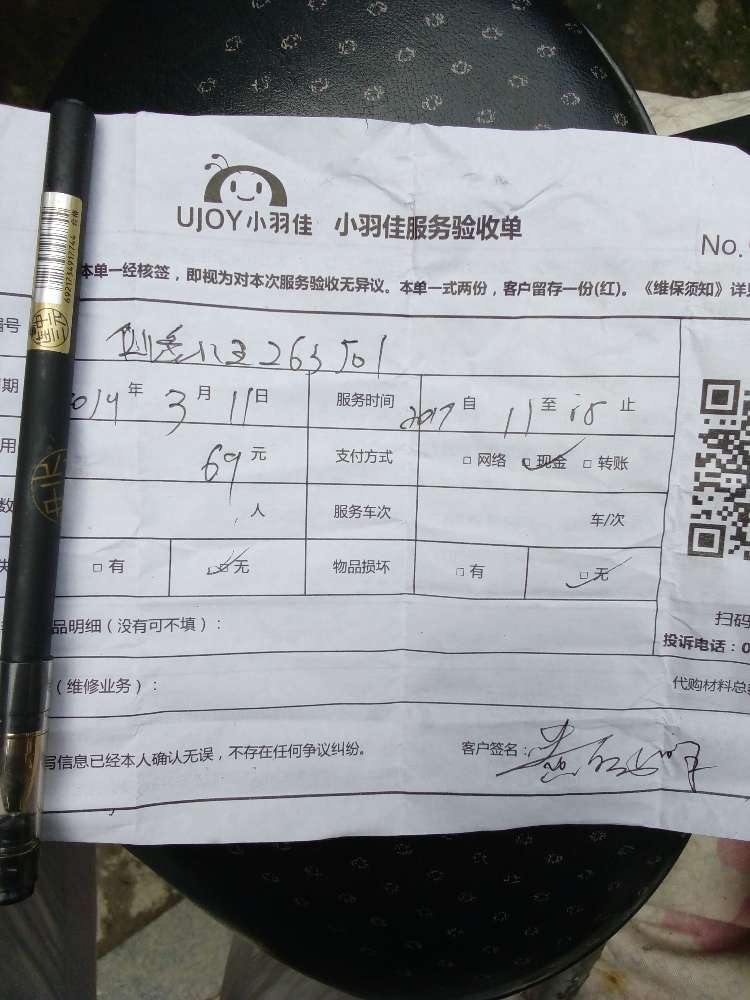 UJOY小羽佳 小羽佳服务验收单
No.
本单一经核签，即视为对本次服务验收无异议。本单一式两份，客户留存一份(红)。《维保须知》详见
编号 263 501
期 年 3 月 11 日 服务时间 2017 自 11 至 止
用 69 元 支付方式 □ 网络 □ 现金 □ 转账
数 人 服务车次 车/次
失 □ 有 □ 无 物品损坏 □ 有 □ 无
扫码
品明细（没有可不填）：
投诉电话：0
（维修业务）：
代购材料总
写信息已经本人确认无误，不存在任何争议纠纷。 客户签名：
6921734917744